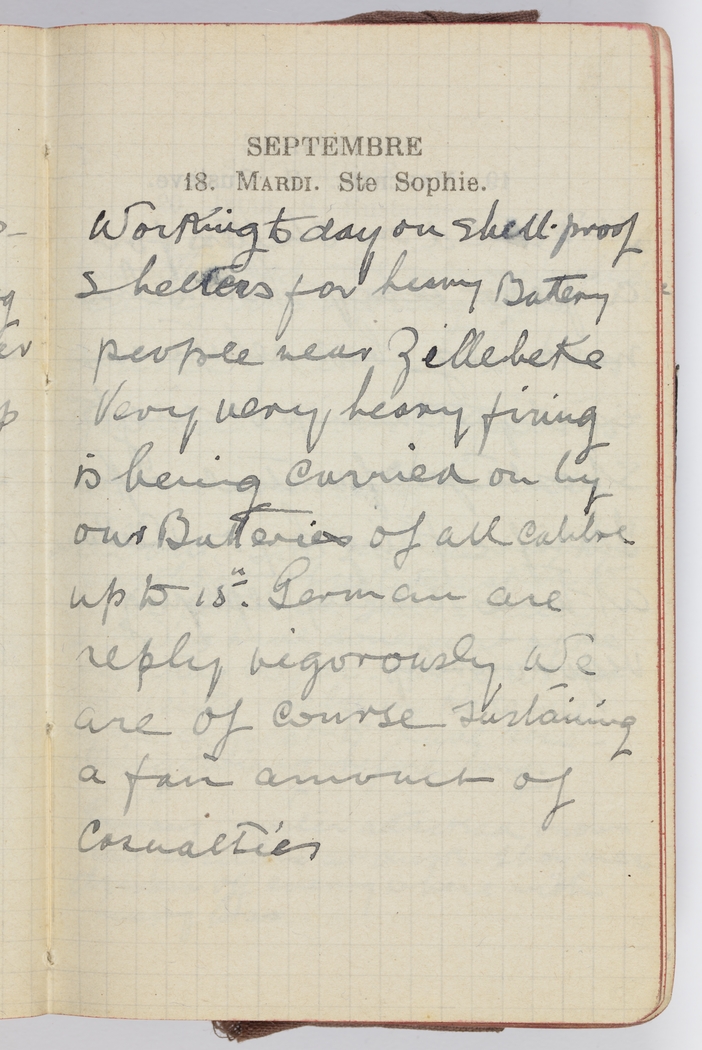 SEPTEMBRE
18. MARDI. Ste Sophie.
Working to day on shell-proof
shelters for heavy Batery
people near Zillebeke
Very very heavy firing
is being carried on by
our Batteries of all calibre
up to 15". German are
reply vigorously We
are of course sustaining
a fair amount of
Casualties